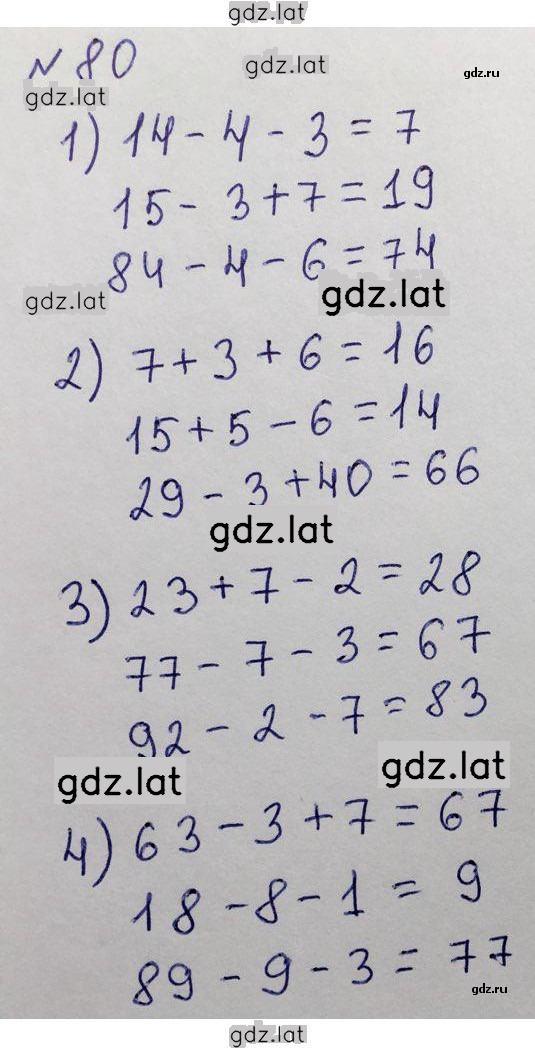 gdz.lat
№ 80
gdz.lat
gdz.ru
gdz.lat
1) 14 - 4 - 3 = 7
15 - 3 + 7 = 19
84 - 4 - 6 = 74
gdz.lat
gdz.lat
2) 7 + 3 + 6 = 16
15 + 5 - 6 = 14
29 - 3 + 40 = 66
gdz.lat
3) 23 + 7 - 2 = 28
77 - 7 - 3 = 67
92 - 2 - 7 = 83
gdz.lat
gdz.lat
4) 63 - 3 + 7 = 67
18 - 8 - 1 = 9
89 - 9 - 3 = 77
gdz.ru
gdz.lat